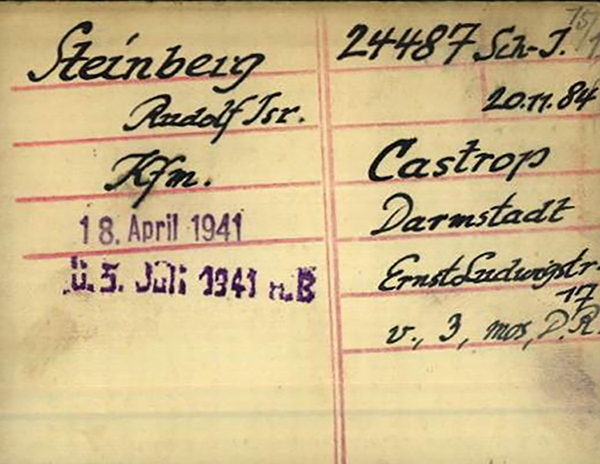 Steinberg
Rudolf Isr.
Kfm.
18. April 1941
Ü. 5. Juli 1941 n.B
24487 Sch-J.
20.11.84
Castrop
Darmstadt
Ernst Ludwigstr.
17
v., 3, mos, D.R.